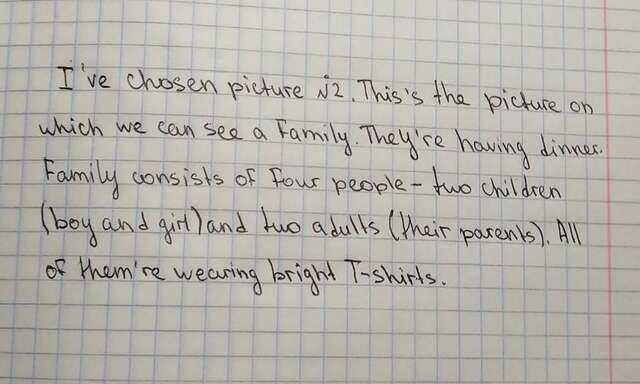 I've chosen picture №2. This's the picture on
which we can see a Family. They're having dinner.
Family consists of four people – two children
(boy and girl) and two adults (their parents). All
of them're wearing bright T-shirts.